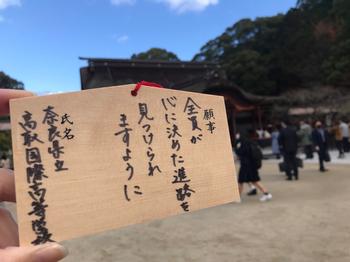 願事
全員が
心に決めた進路を
見つけられ
ますように
氏名
奈良県立
高取国際高等学校